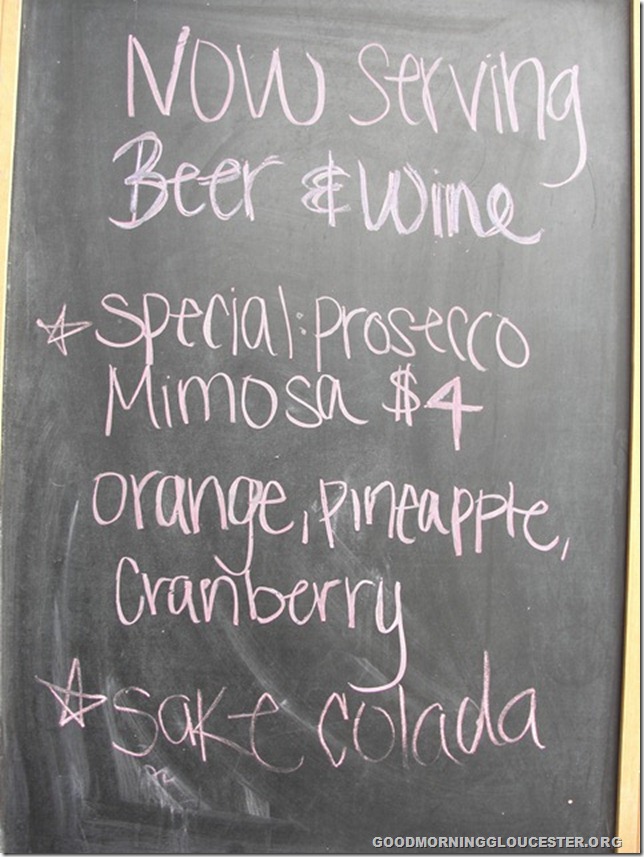 NOW serving
Beer & Wine
special: prosecco
Mimosa $4
orange, pineapple,
cranberry
sake colada
GOODMORNINGGLOUCESTER.ORG